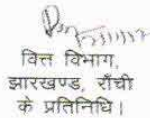 वित्त विभाग,
झारखण्ड, राँची
के प्रतिनिधि।